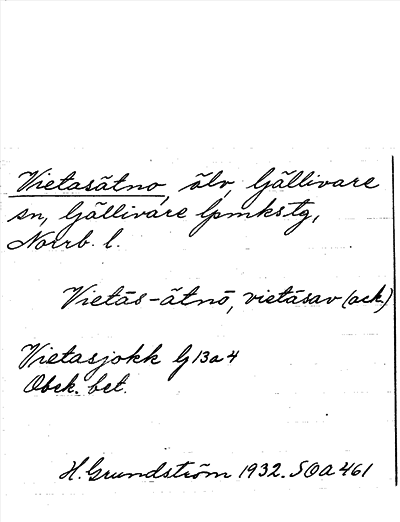 Vietasätno, älv, Gällivare
sn, Gällivare lpmkstg,
Norrb. l.
Vietås-ätnō, vietåsav (ack.)
Vietasjokk G 13 a 4
Obek. bet.
H. Grundström 1932. SOA 461